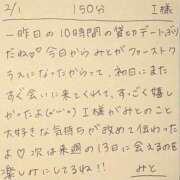 2/1 150分 I様
一昨日の10時間の貸切デートぶり
だね♡今日からみとがファーストク
ラスになったからって、初日にまた
すぐ会いに来てくれて、すっごく嬉し
かったよ(>᎑<)♡I様がみとのこと
大好きな気持ちが改めて伝わった
よ♡次は来週の13日に会えるのを
楽しみにしてるね!!
みと